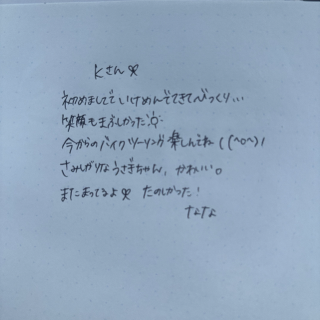 Kさん♡
初めましてでいけめんでてきてびっくり…
笑顔もまぶしかった☼
今からのバイクツーリング楽しんでね((^o^)/
さみしがりなうさぎちゃん、かわいい。
またまってるよ♡ たのしかった!
ななな